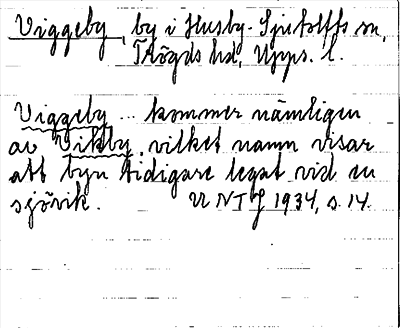 Viggeby, by i Husby-Sjutolffs sn,
Trögds hd, Upps. l.
Viggeby ... kommer nämligen
av Vikby, vilket namn visar
att byn tidigare legat vid en
sjövik. UNTJ 1934, s. 14.